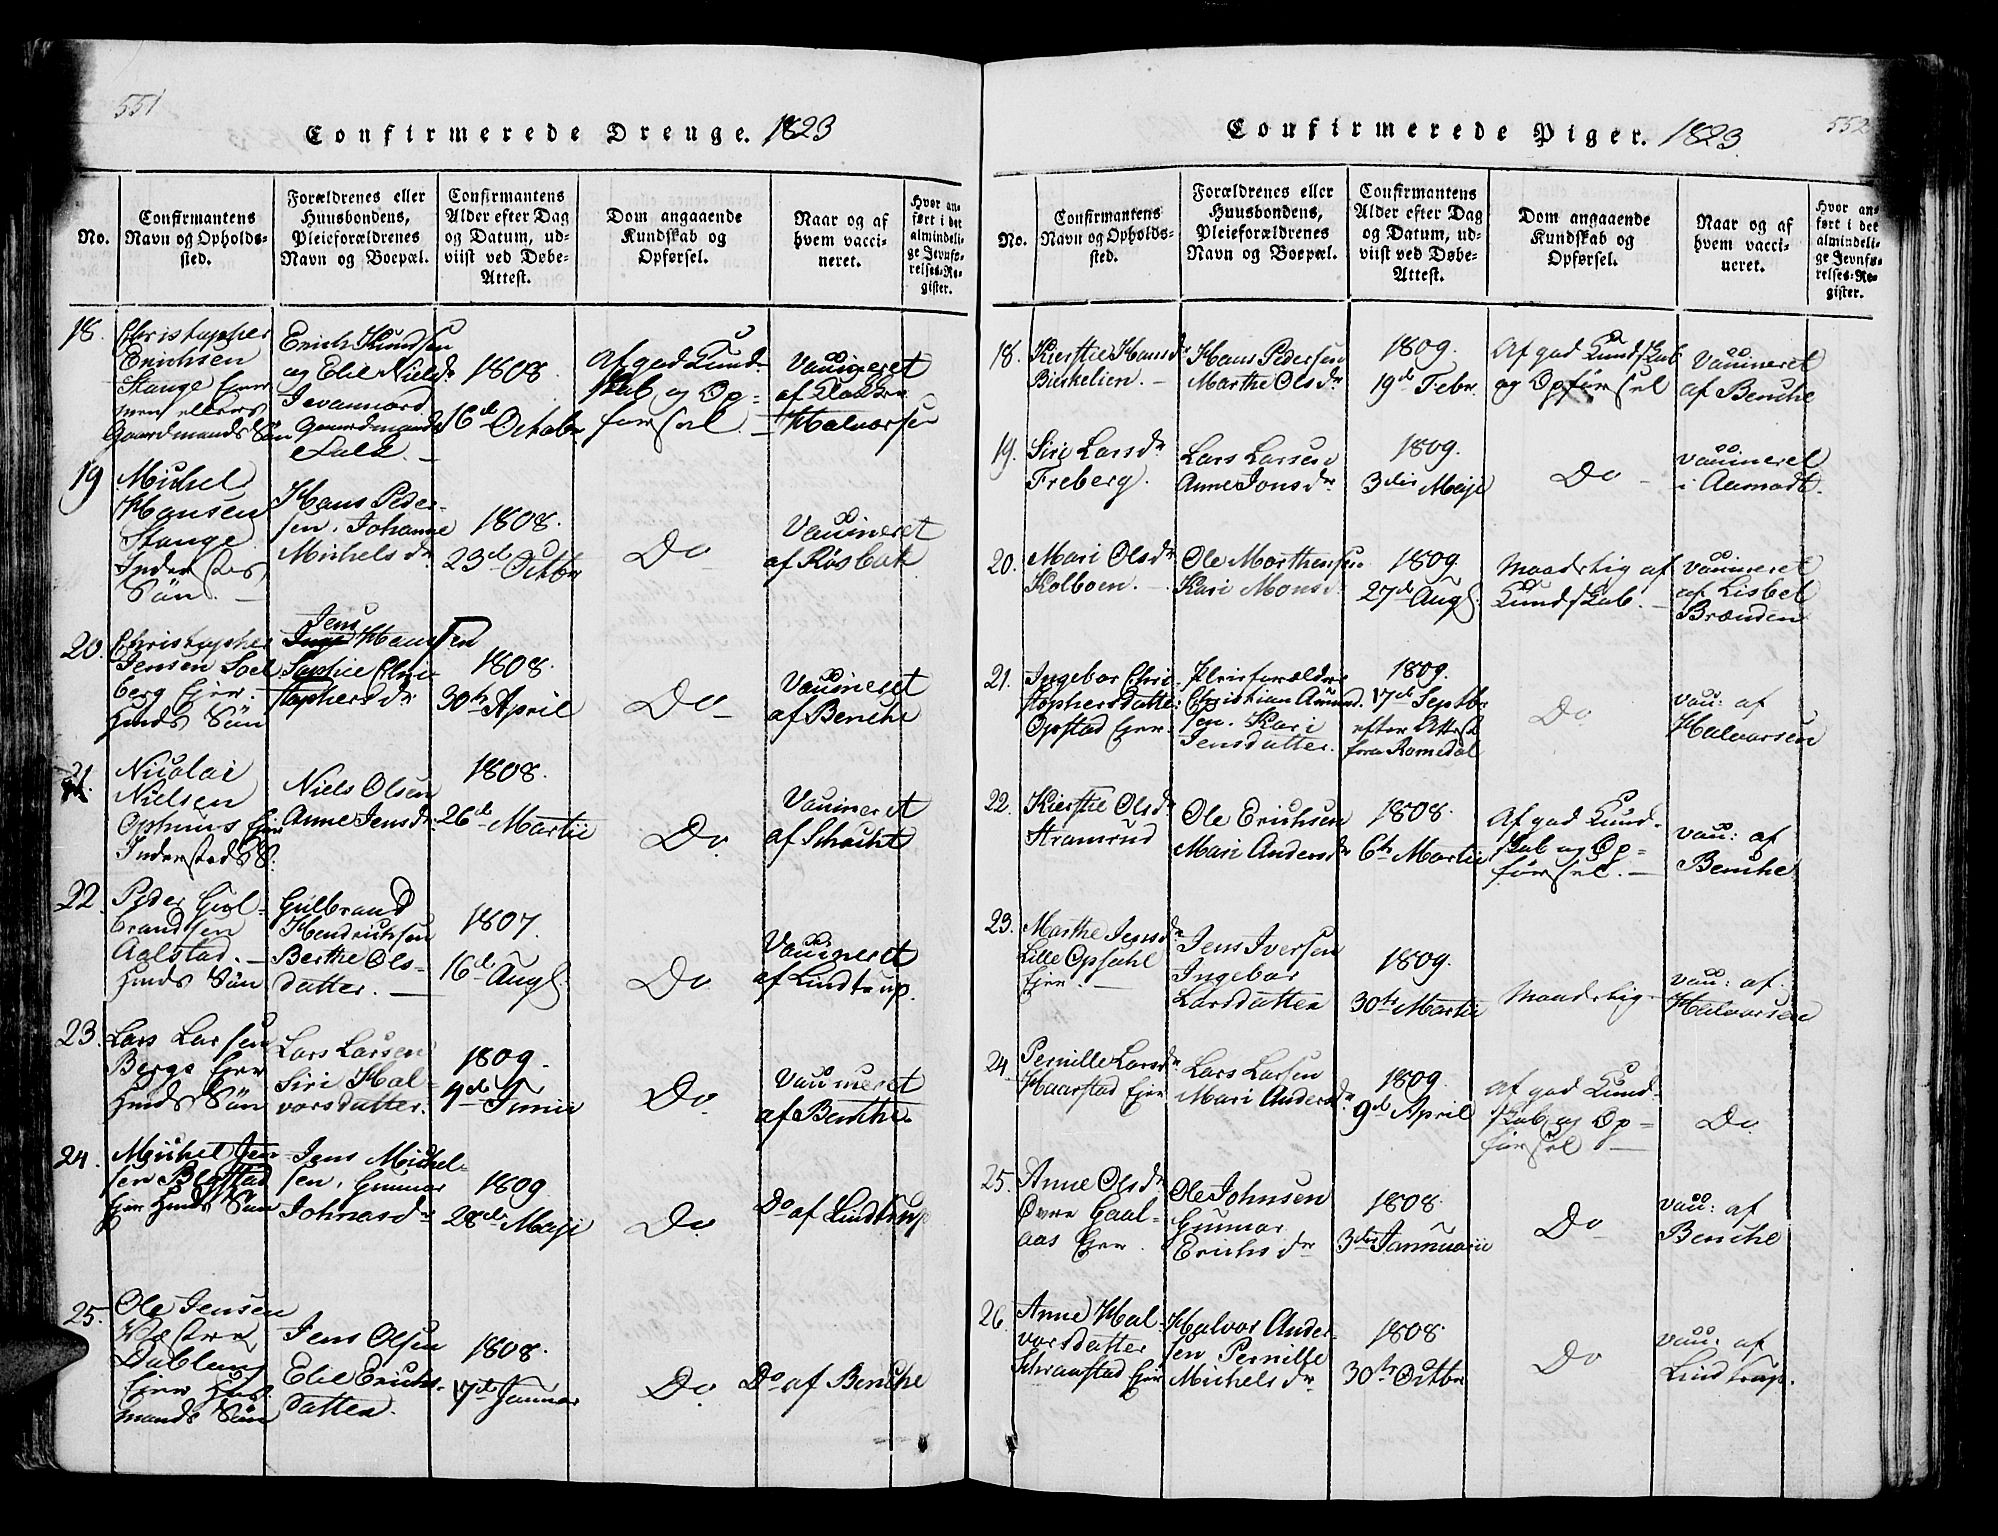 551
Confirmerede Drenge. 1823
No.
Confirmantens
Navn og Opholds-
sted.
Forældrenes eller
Huusbondens,
Pleieforældrenes
Navn og Boepæl.
Confirmantens
Alder efter Dag
og Datum, ud-
viist ved Døbe-
Attest.
Dom angaaende
Kundskab og
Opførsel.
Naar og af
hvem vacci-
neret.
Hvor an-
ført i det
almindeli-
ge Jevnfø-
relses-Re-
gister.
18.
Christopher
Erichsen
Stange Eier
Gaardmands Søn
Erich Knudsen
og Elie Nielsdr
Gaardmands
1808
16d Octobr
Af god Kund-
skab og Op-
førsel
Vaccineret
af Klokker
Halvorsen
19
Michel
Hansen
Stange
Inderstes
Søn.
Hans Peder-
sen, Johanne
Michelsdr
1808.
23d Octbr
Do
Vaccineret
af Rösbak
20.
Christopher
Jensen Soel
berg Eier
Huusds Søn
Jens
Hansen
Sophie Chri-
stophersdr
1808.
30te April
Do
Vaccineret
af Benche
21.
Nicolai
Nielsen
Ophuus Eier
Indersteds S.
Niels Olsen
Anne Jensdr
1808.
26d Martii
Do.
Vaccineret
af Schacht
22.
Peder Gul-
brandsen
Aalstad.
Huusds Søn
Gulbrand
Hendrichsen
Berthe Ols-
datter.
1807.
16d Augs.
Do
Vaccineret
af Lindtrup.
23.
Lars Larsen
Berge Eier
Huusds Søn
Lars Larsen
Siri Hal-
vorsdatter.
1809.
9de Junii
Do.
Vaccineret
af Benche.
24.
Michel Jen-
sen Blystad
Eier Huusds Søn
Jens Michel-
sen, Gunnor
Johnasdr
1809
28de Maji
Do.
Do af Lindtrup
25.
Ole Jensen
Westre
Dobloug
Eier Huus
mands Søn
Jens Olsen
Elie Erichs-
datter.
1808.
17d Januar
Do.
Do af Benche
Confirmerede Piger. 1823.
552
No.
Confirmantens
Navn og Opholds-
sted.
Forældrenes eller
Huusbondens,
Pleieforældrenes
Navn og Boepæl.
Confirmantens
Alder efter Dag
og Datum, ud-
viist ved Døbe-
Attest.
Dom angaaende
Kundskab og
Opførsel.
Naar og af
hvem vacci-
neret.
Hvor an-
ført i det
almindeli-
ge Jevnfø-
relses-Re-
gister.
18.
Kierstie Hansdr
Birkelien.
Hans Pedersen
Marthe Olsdr
1809.
19de Febr
Af god Kundskab
og Opførsel
Vaccineret
af Benche
19.
Siri Larsdr
Freberg.
Lars Larsen
Anne Jonsdr
1809.
3die Maji
Do
Vaccineret
i Aamodt.
20.
Mari Olsdr
Kolboen.
Ole Morthensen
Kari Monsd.
1809.
27de Augs.
Maadelig af
Kundskab.
Vaccineret
af Lisbet
Brænden
21.
Ingebor Chri-
stophersdatter
Opstad Eier.
Pleieforældre
Christian Amund-
sen. Kari
Jensdatter.
1809.
17de Septbr
efter Attest
fra Romedal
Do
Vacc: af
Halvorsen
22.
Kierstie Olsdr
Stramrud
Ole Erichsen
Mari Andersdr
1808.
6te Martii
Af god Kund-
skab og Op-
førsel.
Vacc: af
Benche
23.
Marthe Jensdr
Lille Opsahl
Eier.
Jens Iversen
Ingebor
Larsdatter
1809.
30te Martii
Maadelig
Vacc: af
Halvorsen
24.
Pernille Larsdr
Haarstad Eier
Lars Larsen
Mari Andersdr
1809.
9de April
Af god Kund-
skab og Op-
førsel
Do.
25.
Anne Olsdr
Øvre Gaal-
aas Eier.
Ole Johnsen
Gunnor
Erichsdr
1808.
3die Januarii
Do
Vacc: af
Benche
26.
Anne Hal-
vorsdatter
Schramstad Eier
Halvor Ander-
sen Pernille
Michelsdr
1808.
30te Octbr
Do
Vacc: af
Lindtrup.